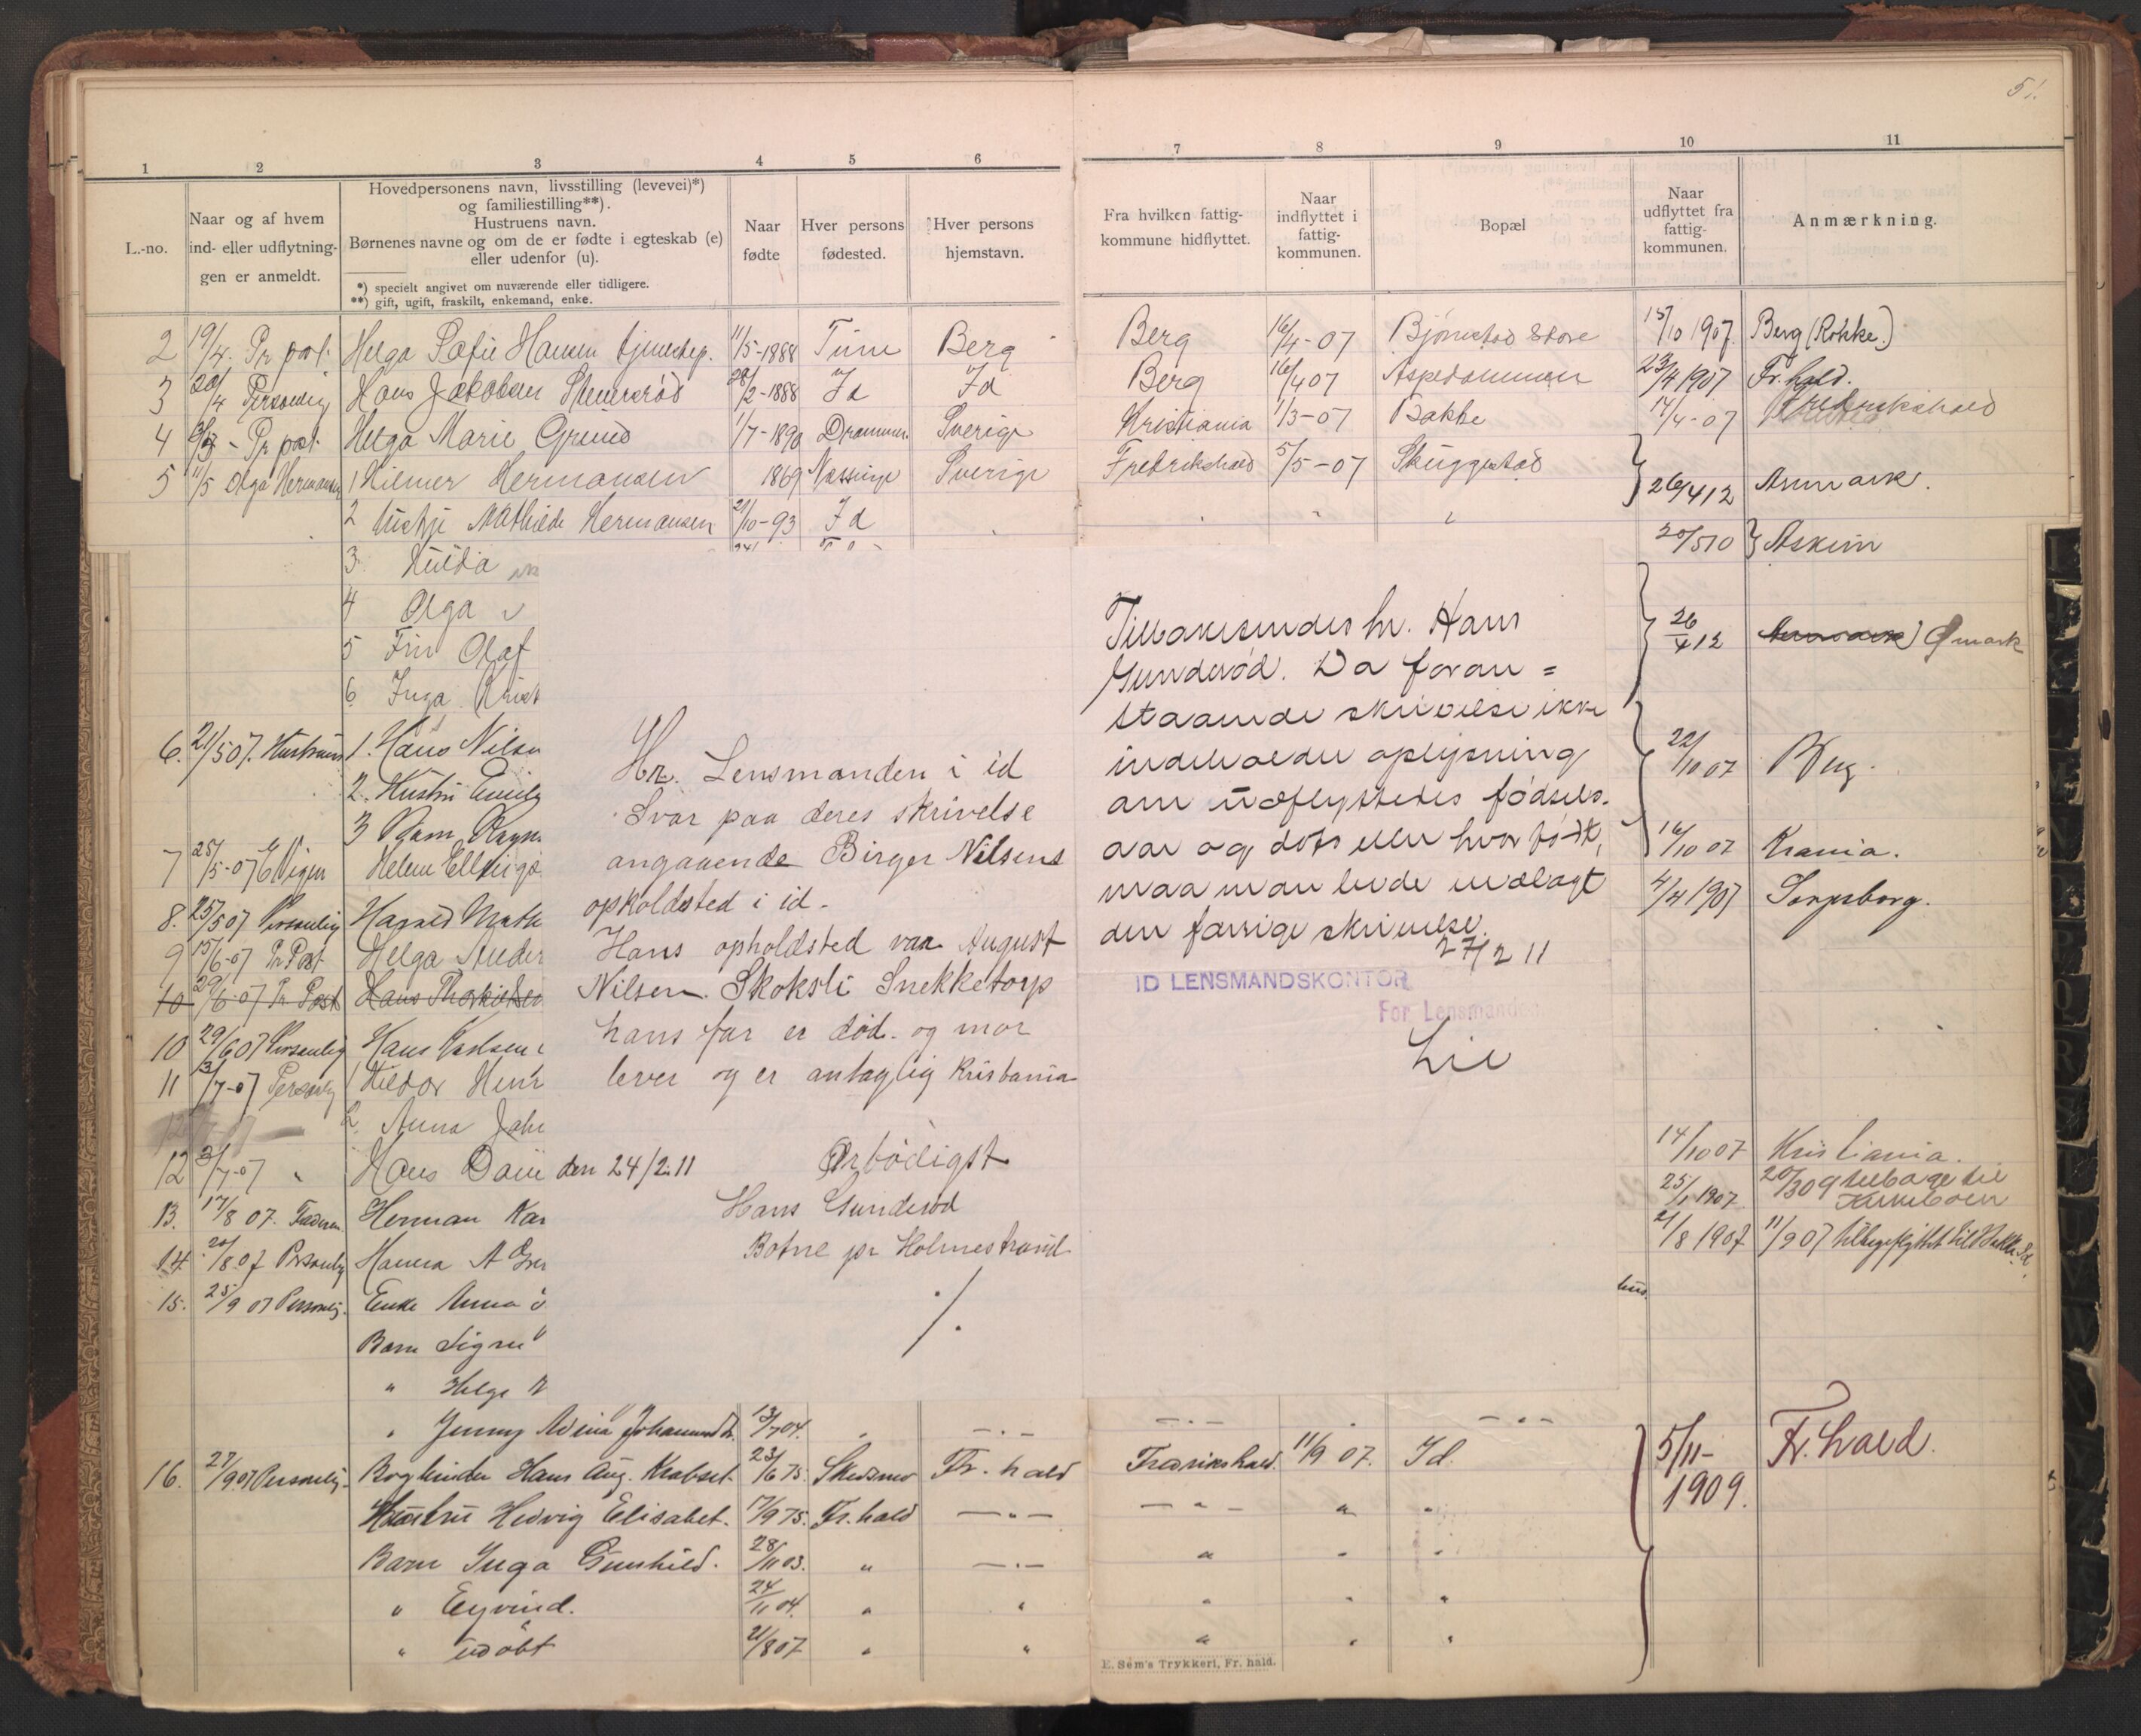 51.
1 2 3 4 5 6 7 8 9 10 11
L.-no.
Naar og af hvem
ind- eller udflytnin-
gen er anmeldt.
Hovedpersonens navn, livsstilling (levevei)*)
og familiestilling**).
Hustruens navn.
Børnenes navne og om de er fødte i egteskab (e)
eller udenfor (u).
*) specielt angivet om nuværende eller tidligere.
**) gift, ugift, fraskilt, enkemand, enke.
Naar
fødte
Hver persons
fødested.
Hver persons
hjemstavn.
Fra hvilken fattig-
kommune hidflyttet.
Naar
indflyttet i
fattig-
kommunen.
Bopæl
Naar
udflyttet fra
fattig-
kommunen.
Anmærkning.
2 19/4. Pr post. Helga Sofie Hansen tjenestep. 11/5-1888 Tune Berg Berg 16/4-07 Bjørnstad Store 15/10 1907. Berg (Rokke.)
3 20/4 Personlig Hans Jakobsen Stenerød 28/2-1888 Id Id Berg 16/4 07 Aspedammen 23/4 1907 Fr.hald.
4 Pr post. Helga Marie Grund 1/7-1890 Drammen Sverige Kristiania 1/3-07 Bakke 14/4-07 Fredrikshald
5 11/5 Olga Hermansen 1 Hilmer Hermansen 1869 Næssinge Sverige Fredrikshald 5/5-07 Skuggestad 26/4 12 Aremark.
2 Mathilde Hermansen 21/10-93 Id 20/5 10 } Askim
3. Hulda
4 Olga
5 Finn Olaf 26/4 12 Ømark
6 Inga Krist
6. 21/5 07. Hustruen 1. Hans Nilse 22/10 07 Berg.
2. Hustru Emily
3 Barn Ragn
7 25/5-07 Helene Ell 16/10 07 Krania.
8. 25/5 07 Personlig Harald Math 4/4 1907 Sarpsborg.
9 15/6-07 Pr Post Helga Ander
10 29/6-07 Pr Post Hans Thorkildsen
10 29/6 07 Personlig Hans Karlsen
11 3/7-07 Personlig 1 Hildor Henr
2. Anna Joha
12 3/7-07 " Hans Dani 14/10 07 Kristiania.
13. 17/8 07. Faderen Herman Kar 25/ 1907. 20/3 09 tilbage til
14. 20/8 07 Personlig Hanna A 21/8 1907 11/9 07 tilbageflyttet til Bakke Id.
15. 25/9 07 Personlig. Enke Anna
Barn Signe
" Helge
hus.
Hr. Lensmanden i id
Svar paa deres skrivelse
angaaende Birger Nilsens
opholdsted i id.
Hans opholdsted var August
Nilsen. Skoksli Snekketorp
hans far er død. og mor
lever og er antaglig Kristiania
den 24/2. 11 Ærbødigst
Hans Gunderød
Botne pr Holmestrand
./.
Tilbakesendes hr. Hans
Gunderød. Da foran=
staaende skrivelse ikke
indeholder oplysning
om utflyttedes fødsels-
aar og dato eller hvor født,
maa man bede vedlagt
den forrige skrivelse.
27/2 11
ID LENSMANDSKONTOR
For Lensmanden
Lie
" Jenny Johannesdt. 13/7 04. " —"— —"— " —"—
16. 27/9 07 Personlig. Bogbinder Hans Aug. Krabset. 23/6 75. Skedsmo Fr.hald Fredrikshald. 11/9 07. Id. 5/11- 1909. Fr.hald.
Hustru Hedvig Elisabet. 17/9 75. Fr.hald —"— —"— " "
Barn Inga Gunhild. 28/11 03. " —"— " " "
" Eyvind. 24/11 04. " " " " "
" udøbt 21/8 07 " " " " "
E. Sem's Trykkeri, Fr. hald.